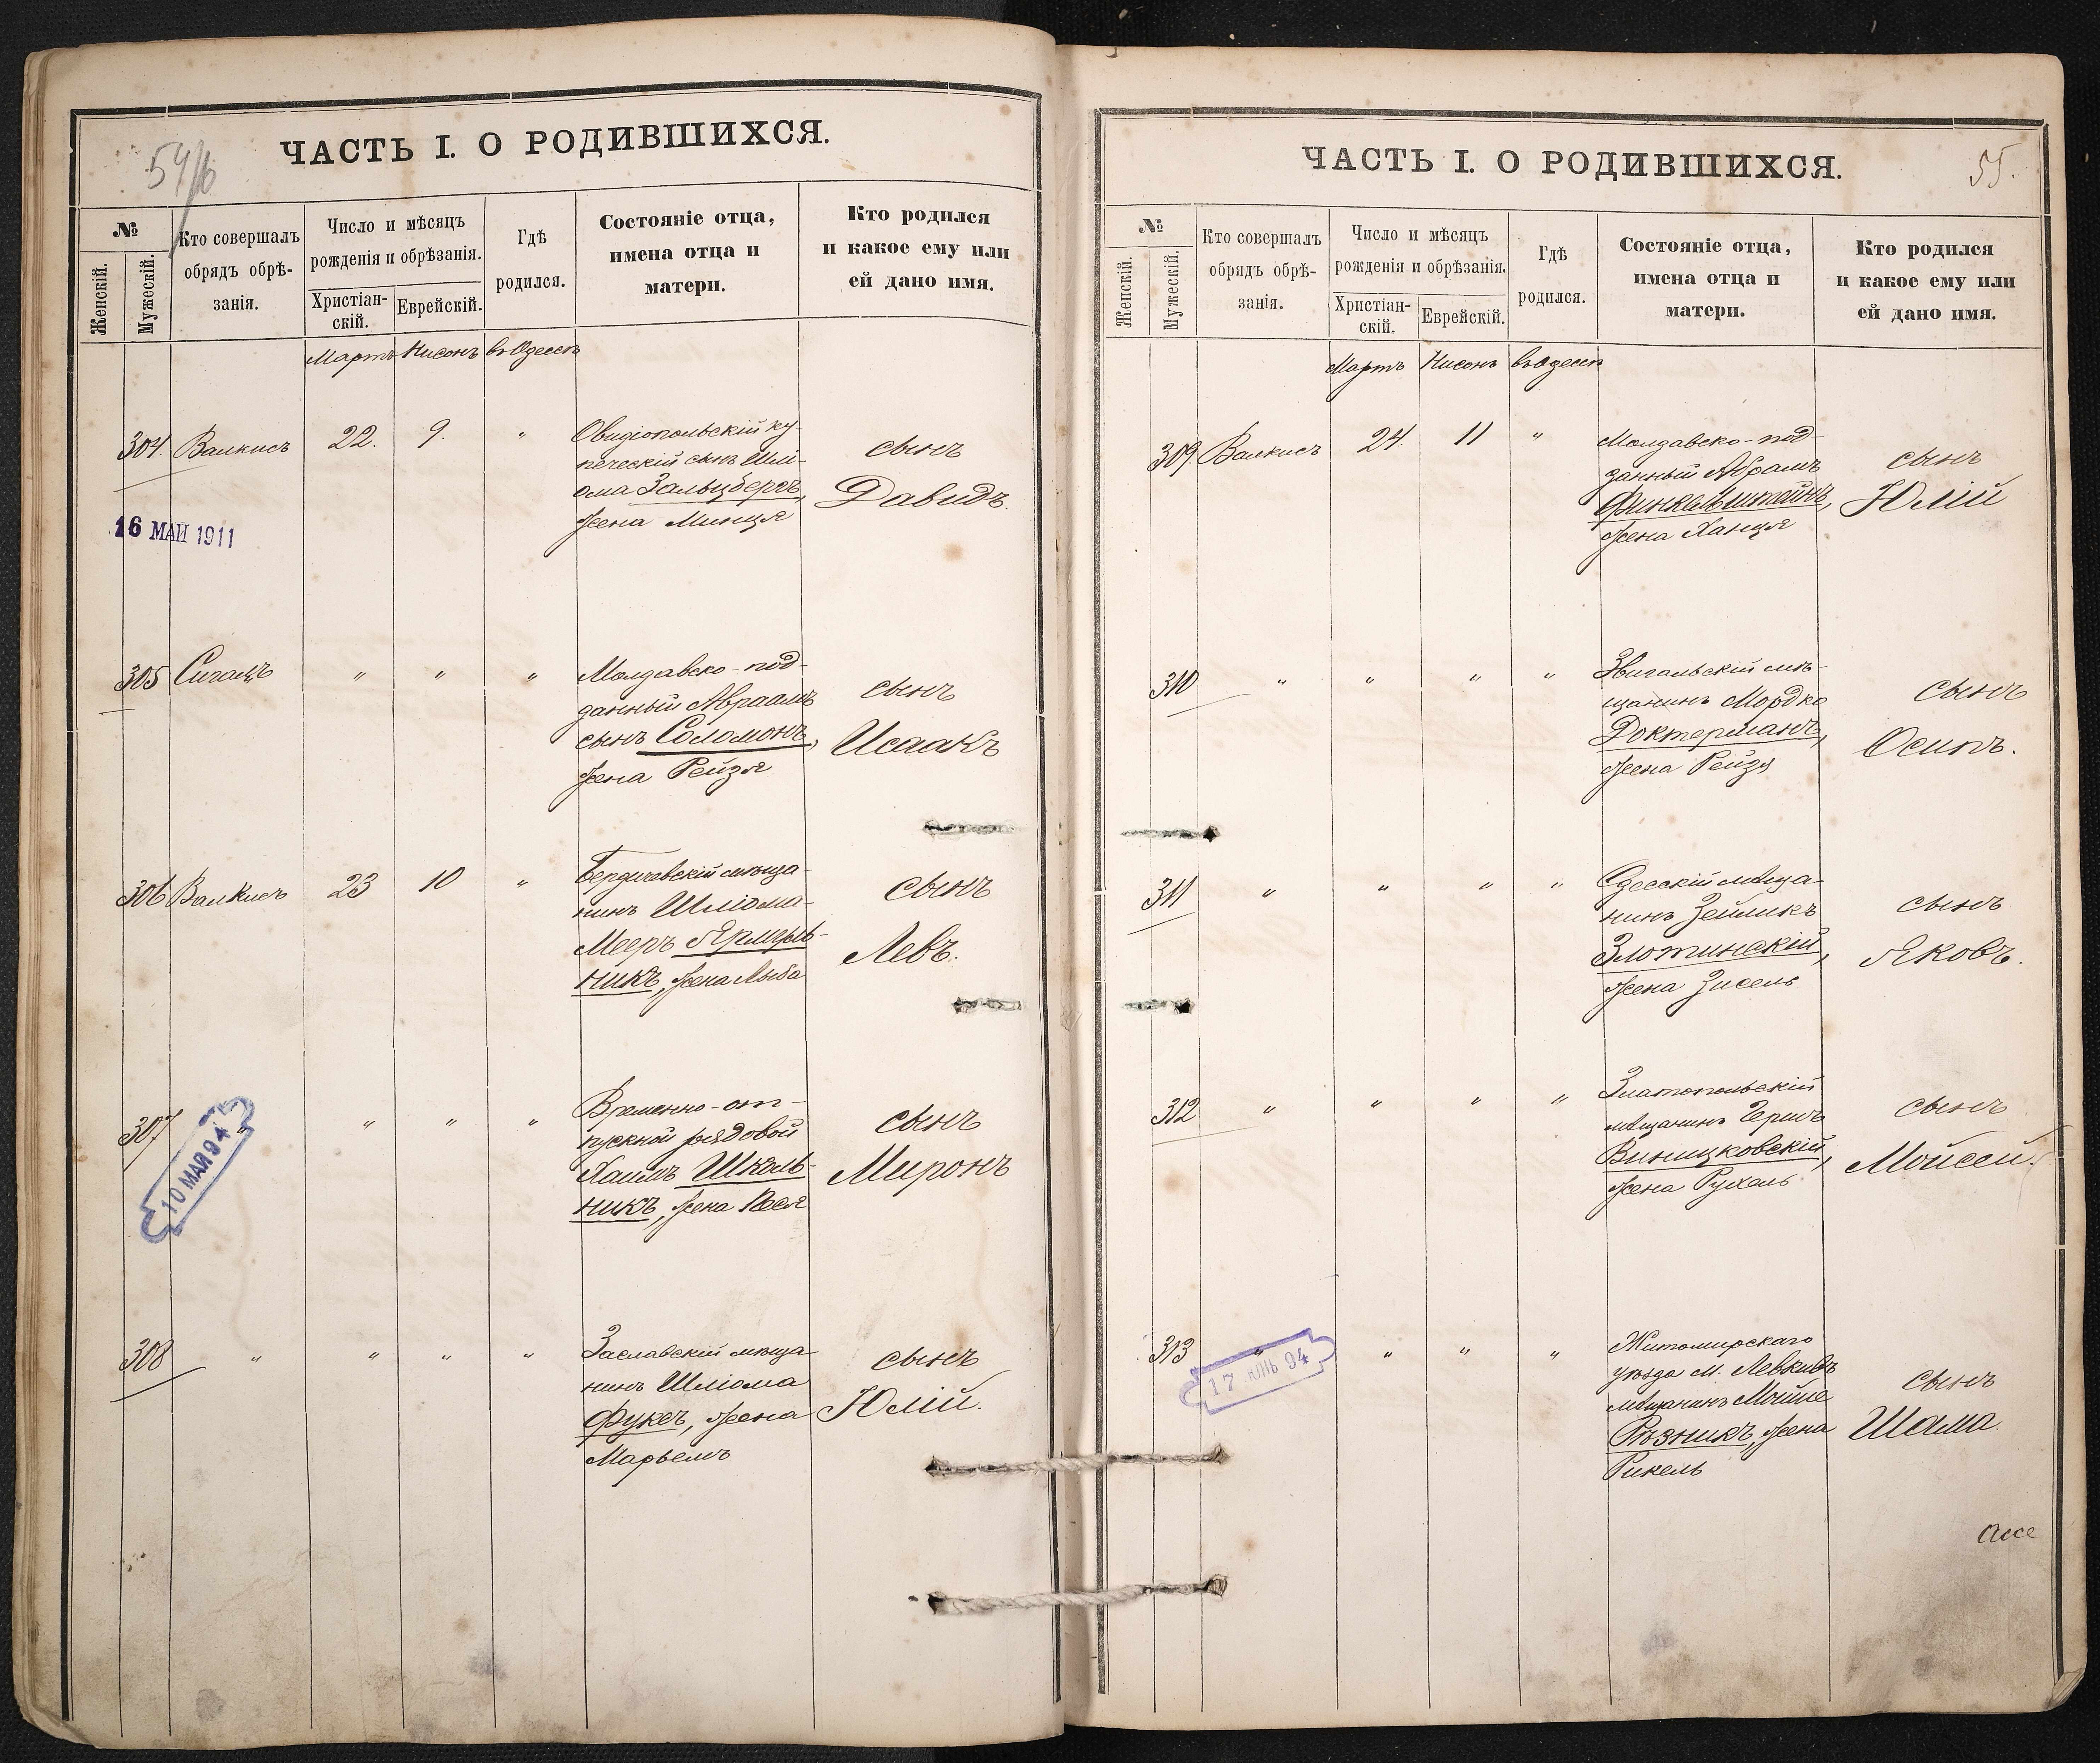 54/б
ЧАСТЬ I. О РОДИВШИХСЯ.
№
Женскій.
Мужескій.
Кто совершалъ
обрядъ обрѣ-
занія.
Число и мѣсяцъ
рожденія и обрѣзанія.
Христіан-
скій.
Еврейскій.
Гдѣ
родился.
Состояніе отца,
имена отца и
матери.
Кто родился
и какое ему или
ей дано имя.
Мартъ Нисонъ въ Одессѣ
304. Валкисъ 22. 9. "
Овидіопольскій ку-
печескій сынъ Шлі-
ома Зальцбергъ,
жена Минця
сынъ
Давидъ.
16 МАЙ 1911
305 Сигалъ " " "
Молдавско-под-
данный Авраамъ
сынъ Соломонъ,
жена Рейзя
сынъ
Исаакъ
306 Валкисъ 23 10 "
Бердичевскій мѣща-
нинъ Шліома-
Мееръ
никъ, жена
сынъ
Левъ.
307 " " " "
10 МАЯ 94
Временно-от-
пускной рядовой
Хаимъ Школь-
никъ, жена Песя
сынъ
Миронъ
308 " " " "
Заславскій мѣща-
нинъ Шліома
Фуксъ, жена
Марьемъ
сынъ
Юлій.
55.
ЧАСТЬ I. О РОДИВШИХСЯ.
№
Женскій.
Мужескій.
Кто совершалъ
обрядъ обрѣ-
занія.
Число и мѣсяцъ
рожденія и обрѣзанія.
Христіан-
скій.
Еврейскій.
Гдѣ
родился.
Состояніе отца,
имена отца и
матери.
Кто родился
и какое ему или
ей дано имя.
Мартъ Нисонъ въ Одессѣ
309. Валкисъ 24. 11 "
Молдавско-под-
данный Абрамъ
Финкельштейнъ,
жена Ханця
сынъ
Юлій
310 " " " "
Звигальскій мѣ-
щанинъ Мордко
Доктерманъ,
жена Рейзя
сынъ
Осипъ.
311 " " " "
Одесскій мѣща-
нинъ Зейликъ
Злотинскій,
жена Зисель
сынъ
Яковъ.
312 " " " "
Златопольскій
мѣщанинъ Гершъ
Виницковскій,
жена Рухель
сынъ
Мойсей.
313 " " " "
17 ІЮНЬ 94
Житомирскаго
уѣзда м. Левковъ
мѣщанинъ Мойше
Рѣзникъ, жена
Рикель
сынъ
Шама.